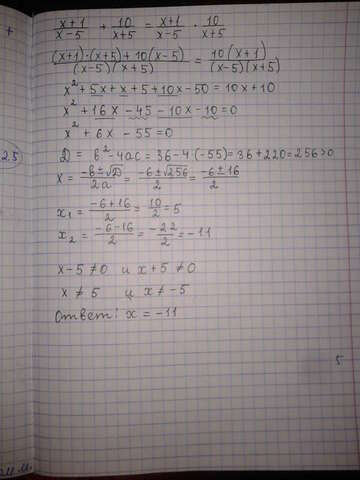 (x+1)/(x-5) + 10/(x+5) = (x+1)/(x-5) · 10/(x+5)
((x+1)·(x+5)+10(x-5))/((x-5)(x+5)) = 10(x+1)/((x-5)(x+5))
x²+5x+x+5+10x-50=10x+10
x²+16x-45-10x-10=0
x²+6x-55=0
25
D=b²-4ac=36-4·(-55)=36+220=256>0
x=(-6±√D)/2a=(-6±√256)/2=(-6±16)/2
x₁=(-6+16)/2=10/2=5
x₂=(-6-16)/2=-22/2=-11
x-5≠0 и x+5≠0
x≠5 и x≠-5
Ответ: x=-11
5